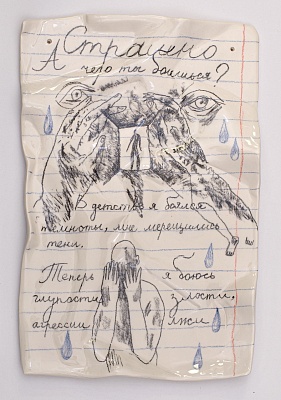 Страшно
А чего ты боишься?
В детстве я боялся
темноты, мне мерещились
тени.
Теперь я боюсь
глупости, злости,
агрессии лжи